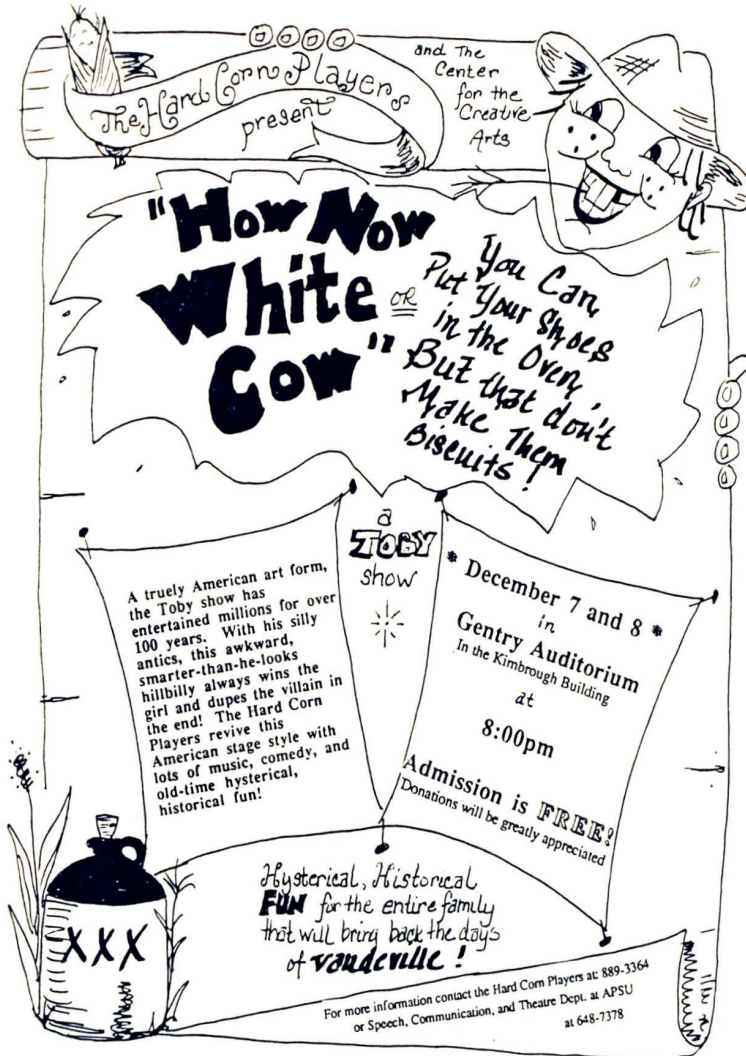 The Hard Corn Players
present
and The
Center
for the
Creative
Arts
"How Now
White
Cow"
OR
You Can
Put Your Shoes
in the Oven,
But that don't
Make Them
Biscuits!
a
TOBY
show
A truely American art form,
the Toby show has
entertained millions for over
100 years. With his silly
antics, this awkward,
smarter-than-he-looks
hillbilly always wins the
girl and dupes the villain in
the end! The Hard Corn
Players revive this
American stage style with
lots of music, comedy, and
old-time hysterical,
historical fun!
* December 7 and 8 *
in
Gentry Auditorium
In the Kimbrough Building
at
8:00pm
Admission is FREE!
Donations will be greatly appreciated
XXX
Hysterical, Historical
FUN for the entire family
that will bring back the days
of vaudeville!
For more information contact the Hard Corn Players at: 889-3364
or Speech, Communication, and Theatre Dept. at APSU
at 648-7378